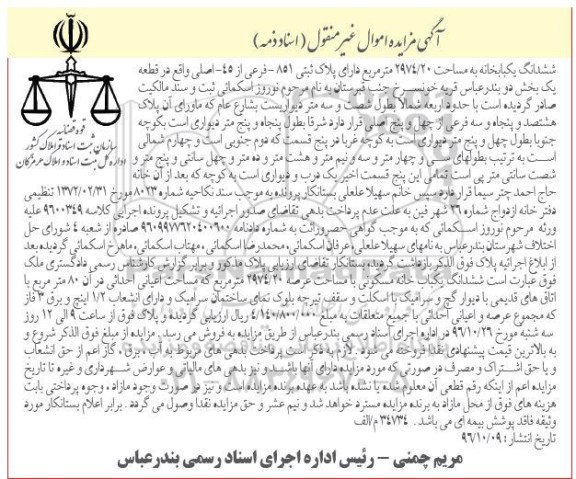 آگهی مزایده اموال غیرمنقول (اسناد ذمه)
قوه قضائیه
سازمان ثبت اسناد و املاک کشور
اداره کل ثبت اسناد و املاک هرمزگان
ششدانگ یکبابخانه به مساحت ۲۹۷۴/۲۰ مترمربع دارای پلاک ثبتی ۸۵۱ - فرعی از ۴۵- اصلی واقع در قطعه
یک بخش دو بندرعباس قریه خونسرخ جنب قبرستان به نام مرحوم نوروز اسکمائی ثبت و سند مالکیت
صادر گردیده است با حدود اربعه شمالا بطول شصت و سه متر دیواریست بشارع عام که ماورای آن پلاک
هشتصد و پنجاه و سه فرعی از چهل و پنج اصلی قرار دارد شرقا بطول پنجاه و پنج متر دیواری است بکوچه
جنوبا بطول چهل و پنج متر دیواری است به کوچه غربا در پنج قسمت که دوم جنوبی است و چهارم شمالی
است به ترتیب بطولهای سی و چهار متر و سه و نیم متر و هشت متر و ده متر و چهل سانتی و پنج متر و
شصت سانتی متر پی است تمامی این پنج قسمت اخیر یک درب و دیواری است به کوچه که بعد از آن خانه
حاج احمد چتر سیما قرار دارد سپس خانم سهیلا علعلی بستانکار پرونده به موجب سند نکاحیه شماره ۸۰۲۳ مورخ ۱۳۷۲/۰۲/۳۱ تنظیمی
دفتر خانه ازدواج شماره ۷۶ شهر فین به علت عدم پرداخت بدهی تقاضای صدور اجرائیه و تشکیل پرونده اجرایی کلاسه ۹۶۰۰۳۴۹ علیه
ورثه مرحوم نوروز اسکمائی که به موجب گواهی حصروراثت به شماره دادنامه ۹۶۰۹۹۷۷۶۲۰۴۰۰۶۰۰ صادره از شعبه ۴ شورای حل
اختلاف شهرستان بندرعباس به نامهای سهیلا علعلی، عرفان اسکمائی، محمدرضا اسکمائی، مهتاب اسکمائی، ماهرخ اسکمائی گردیده بعد
از ابلاغ اجرائیه پلاک فوق الذکر بازداشت گردیده بستانکار تقاضای ارزیابی پلاک مذکور و برابر گزارش کارشناس رسمی دادگستری ملک
فوق عبارت است ششدانگ یکباب خانه مسکونی با مساحت عرصه ۲۹۷۴/۲۰ مترمربع که مساحت اعیانی احداثی در آن ۸۰ متر مربع با
اتاق های قدیمی با دیوار گچ و سرامیک با اسکلت و سقف تیرچه بلوک نمای ساختمان سرامیک و دارای انشعاب ۱/۲ اینچ و برق ۳ فاز
که مجموع عرصه و اعیانی احداثی با جمیع متعلقات به مبلغ ۴/۱۴۰/۸۰۰/۰۰۰ ریال ارزیابی گردیده و پلاک فوق از ساعت ۹ الی ۱۲ روز
سه شنبه مورخ ۹۶/۱۰/۲۶ در اداره اجرای اسناد رسمی بندرعباس از طریق مزایده به فروش می رسد. مزایده از مبلغ فوق الذکر شروع و
به بالاترین قیمت پیشنهادی نقدا فروخته می شود. لازم به ذکر است پرداخت بدهی های مربوط به آب، برق، گاز اعم از حق انشعاب
و یا حق اشتراک و مصرف در صورتی که مورد مزایده دارای آنها باشد و نیز بدهی های مالیاتی و عوارض شهرداری و غیره تا تاریخ
مزایده اعم از اینکه رقم قطعی آن معلوم شده یا نشده باشد به عهده برنده مزایده است و نیز در صورت وجود مازاد، وجوه پرداختی بابت
هزینه های فوق از محل مازاد به برنده مزایده مسترد خواهد شد و نیم عشر و حق مزایده نقدا وصول می گردد. برابر اعلام بستانکار مورد
وثیقه فاقد پوشش بیمه ای می باشد. ۳۴۷۳۴ م/الف
تاریخ انتشار: ۹۶/۱۰/۰۹
مریم چمنی - رئیس اداره اجرای اسناد رسمی بندرعباس